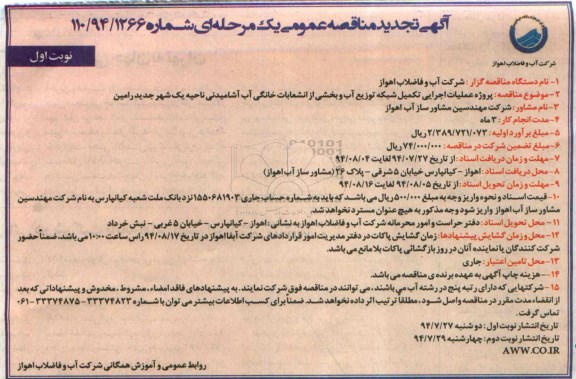 آگهی تجدید مناقصه عمومی یک مرحله‌ای شماره ۱۱۰/۹۴/۱۲۶۶
نوبت اول
شرکت آب و فاضلاب اهواز
۱- نام دستگاه مناقصه گزار: شرکت آب و فاضلاب اهواز
۲- موضوع مناقصه: پروژه عملیات اجرایی تکمیل شبکه توزیع آب و بخشی از انشعابات خانگی آب آشامیدنی ناحیه یک شهر جدید رامین
۳- نام مشاور: شرکت مهندسین مشاور ساز آب اهواز
۴- مدت انجام کار: ۳ ماه
۵- مبلغ برآورد اولیه: ۲/۳۸۹/۷۲۱/۰۷۳ ریال
۶- مبلغ تضمین شرکت در مناقصه: ۷۴/۰۰۰/۰۰۰ ریال
۷- مهلت و زمان دریافت اسناد: از تاریخ ۹۴/۰۷/۲۷ لغایت ۹۴/۰۸/۰۴
۸- محل دریافت اسناد: اهواز - کیانپارس خیابان ۵ شرقی - پلاک ۲۶ (مشاور ساز آب اهواز)
۹- مهلت و زمان تحویل اسناد: از تاریخ ۹۴/۰۸/۰۵ لغایت ۹۴/۰۸/۱۶
۱۰- قیمت اسناد و نحوه واریز وجه به مبلغ ۵۰۰/۰۰۰ ریال می باشد که باید به شماره حساب جاری ۱۵۵۰۶۸۱۹۰۳ نزد بانک ملت شعبه کیانپارس به نام شرکت مهندسین
مشاور ساز آب اهواز واریز شود وجه مذکور به هیچ عنوان مسترد نخواهد شد.
۱۱- محل تحویل اسناد: دفتر حراست و امور محرمانه شرکت آب و فاضلاب اهواز به نشانی: اهواز - کیانپارس - خیابان ۵ غربی - نبش خرداد
۱۲- محل و زمان گشایش پیشنهادها: زمان گشایش پاکات در دفتر مدیریت امور قراردادهای شرکت آبفا اهواز در تاریخ ۹۴/۰۸/۱۷ راس ساعت ۱۰:۰۰ می باشد. ضمناً حضور
شرکت کنندگان یا نماینده آنان در روز بازگشائی پاکات بلامانع می باشد.
۱۳- محل تامین اعتبار: جاری
۱۴- هزینه چاپ آگهی به عهده برنده ی مناقصه می باشد.
۱۵- شرکتهایی که دارای رتبه پنج در رشته آب می باشند، می توانند در مناقصه فوق شرکت نمایند. به پیشنهادهای فاقد امضاء، مشروط، مخدوش و پیشنهاداتی که بعد
از انقضاء مدت مقرر در مناقصه واصل شود، مطلقاً ترتیب اثر داده نخواهد شد. ضمناً برای کسب اطلاعات بیشتر می توان با شماره ۳۳۳۷۴۸۲۳ - ۳۳۳۷۴۸۷۵-۰۶۱
تماس گرفت.
تاریخ انتشار نوبت اول: دوشنبه ۹۴/۷/۲۷
تاریخ انتشار نوبت دوم: چهارشنبه ۹۴/۷/۲۹
AWW.CO.IR
روابط عمومی و آموزش همگانی شرکت آب و فاضلاب اهواز